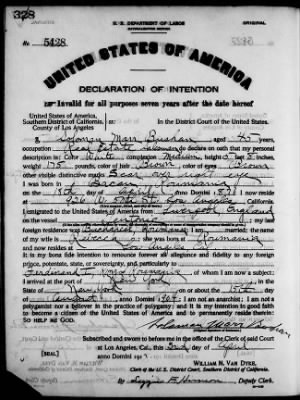 328
U. S. DEPARTMENT OF LABOR
ORIGINAL
No. 5428
UNITED STATES OF AMERICA
DECLARATION OF INTENTION
Invalid for all purposes seven years after the date hereof
United States of America,
Southern District of California, ss:
County of Los Angeles
In the District Court of the United States.
I, Solomon Marr aged 45 years,
occupation Real Estate Salesman do declare on oath that my personal
description is: Color White complexion Medium height 5 feet 5 inches,
weight 175 pounds, color of hair color of eyes Brown
other visible distinctive marks Scar over right eye
I was born in Roumania
on the day of April anno Domini 1878 I now reside
at Los Angeles California.
I emigrated to the United States of America from Liverpool England
on the vessel my last
foreign residence was Bucharest Roumania; I am married; the name
of my wife is Rebecca she was born at Roumania
and now resides at Los Angeles Cal
It is my bona fide intention to renounce forever all allegiance and fidelity to any foreign
prince, potentate, state, or sovereignty, and particularly to
Ferdinand I King Roumania of whom I am now a subject; I
arrived at the port of New York in the
State of New York on or about the 15th day
of August anno Domini 1907 I am not an anarchist; I am not a
polygamist nor a believer in the practice of polygamy; and it is my intention in good faith
to become a citizen of the United States of America and to permanently reside therein:
SO HELP ME GOD.
Solomon Marr
Subscribed and sworn to before me in the office of the Clerk of said Court
at Los Angeles, Cal., this 3rd day of April
anno Domini
[SEAL]
WILLIAM N. VAN DYKE,
Clerk, U. S. District Court, Southern District of California.
By Deputy Clerk.